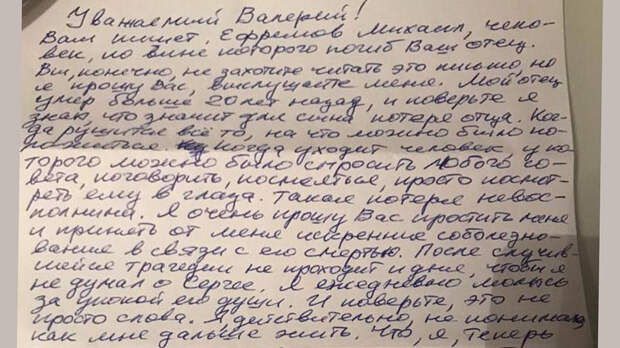 Уважаемый Валерий!
Вам пишет, Ефремов Михаил, чело-
век, по вине которого погиб Ваш отец.
Вы, конечно, не захотите читать это письмо, но
я прошу Вас, выслушайте меня. Мой отец
умер больше 20 лет назад, и поверьте я
знаю, что значит для сына потеря отца. Ког-
да рушится всё то, на что можно было по-
ложиться. когда уходит человек у ко-
торого можно было спросить любого со-
вета, поговорить, посмеяться, просто посмот-
реть ему в глаза. Такая потеря невос-
полнима. Я очень прошу Вас простить меня
и принять от меня искренние соболезно-
вание в связи с его смертью. После случив-
шейся трагедии не проходит и дня, чтобы я
не думал о Сергее. Я ежедневно молюсь
за упокой его души. И поверьте, это не
просто слова. Я действительно, не понимаю,
как мне дальше жить. Что, я, теперь